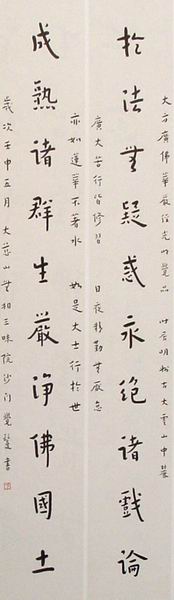 大方廣佛華嚴經光明覺品 時居明招古大雲山中
於法無疑惑永絕諸戲論
廣大苦行皆修習 日夜精勤無厭怠
亦如蓮華不著水 如是大士行於世
成熟諸群生嚴淨佛國土
歲次壬申五月大慈山無相三昧院沙門覺書